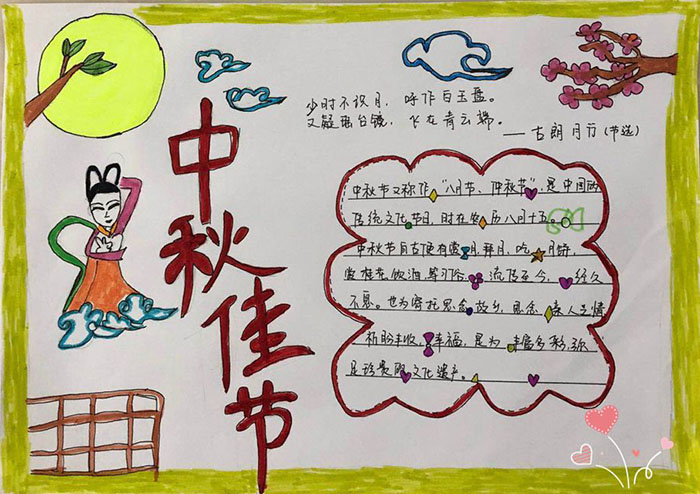 中秋佳节
少时不识月，呼作白玉盘。
又疑瑶台镜，飞在青云端。
——古朗月行(节选)
中秋节又称作"八月节、仲秋节"，是中国
传统文化节日，时在农历八月十五。
中秋节自古便有赏月、拜月、吃月饼，
赏桂花、饮酒等习俗，流传至今，经久
不息。也为寄托思念故乡，思念亲人之情
祈盼丰收、幸福，是为丰富多彩、弥
足珍贵的文化遗产。